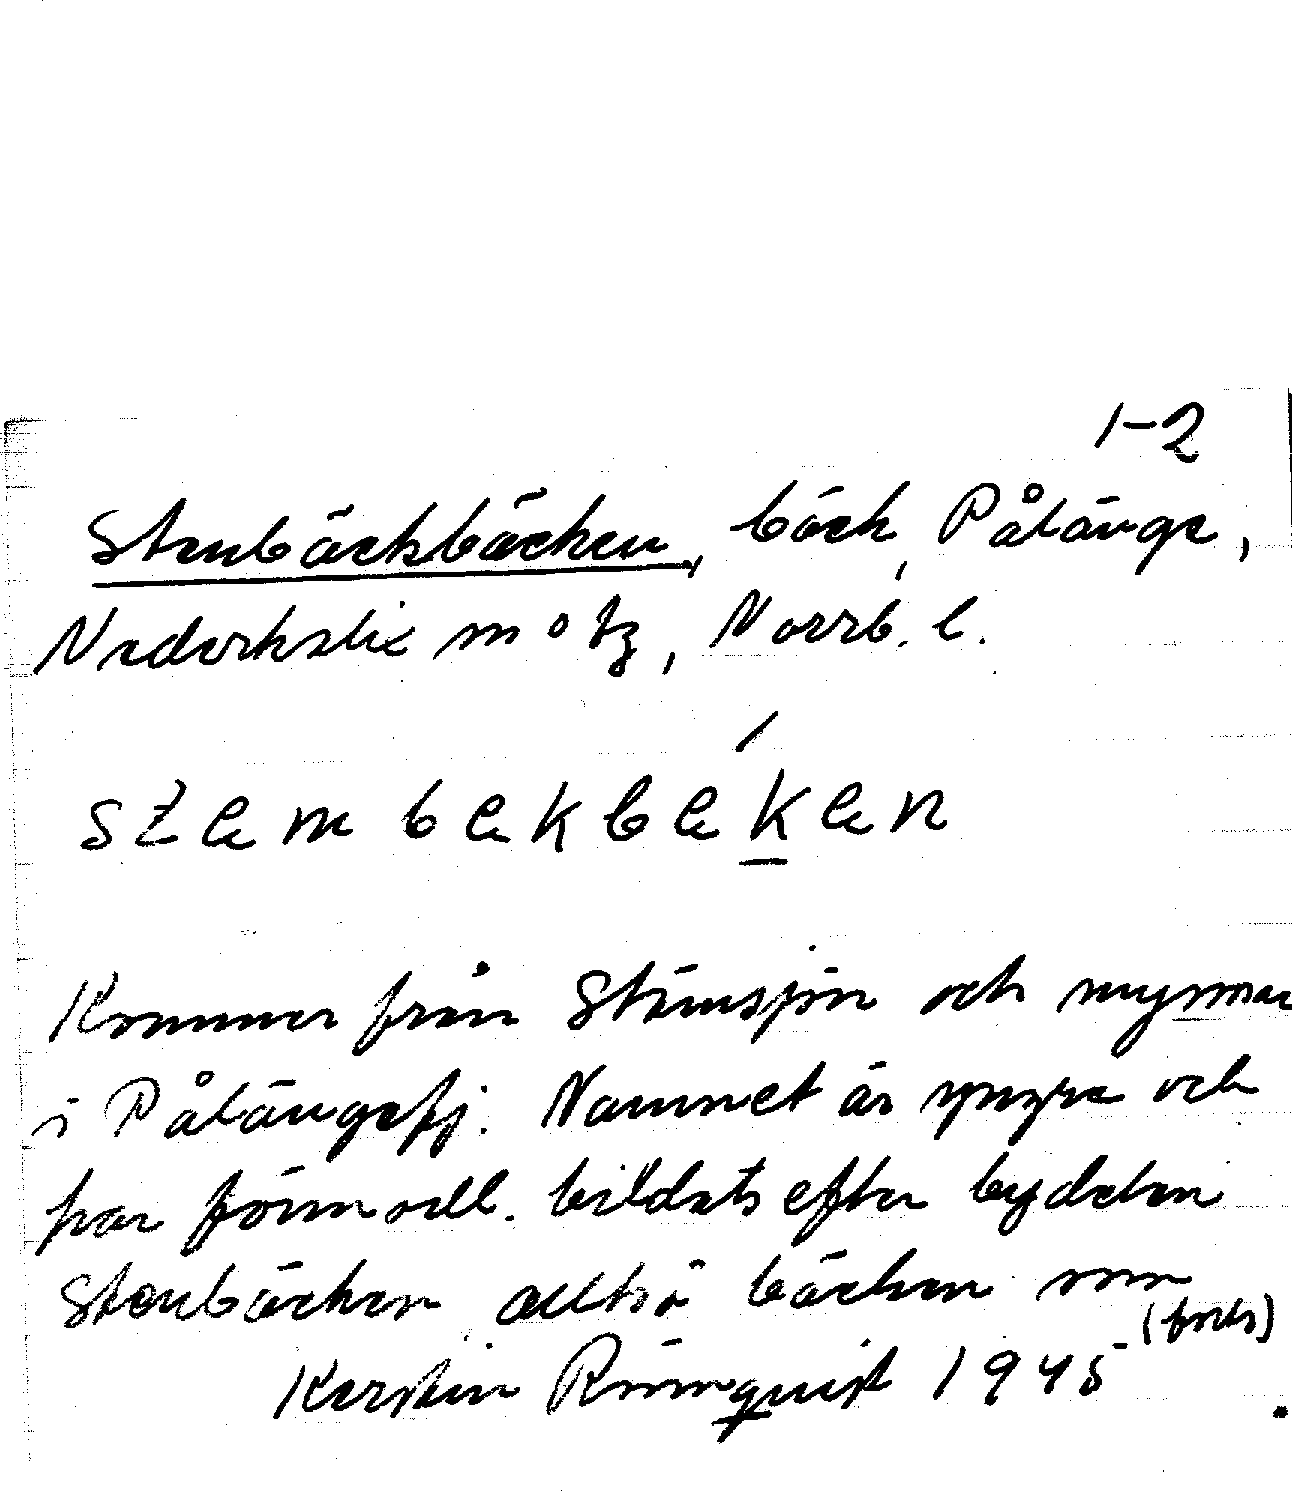 1-2
Stenbäckbäcken, bäck, Pålänge,
Nederkalix m o tg, Norrb. l.
stembekbeken
Kommer från Stämsjön och myrar
i Pålängefj. Namnet är yngre och
har förmodl. bildats efter bydelen
Stenbäcken alltså bäcken som
(forts)
Kerstin Rönnquist 1945